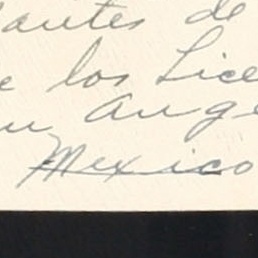 antes de
e los Lice
n Ange
Mexico